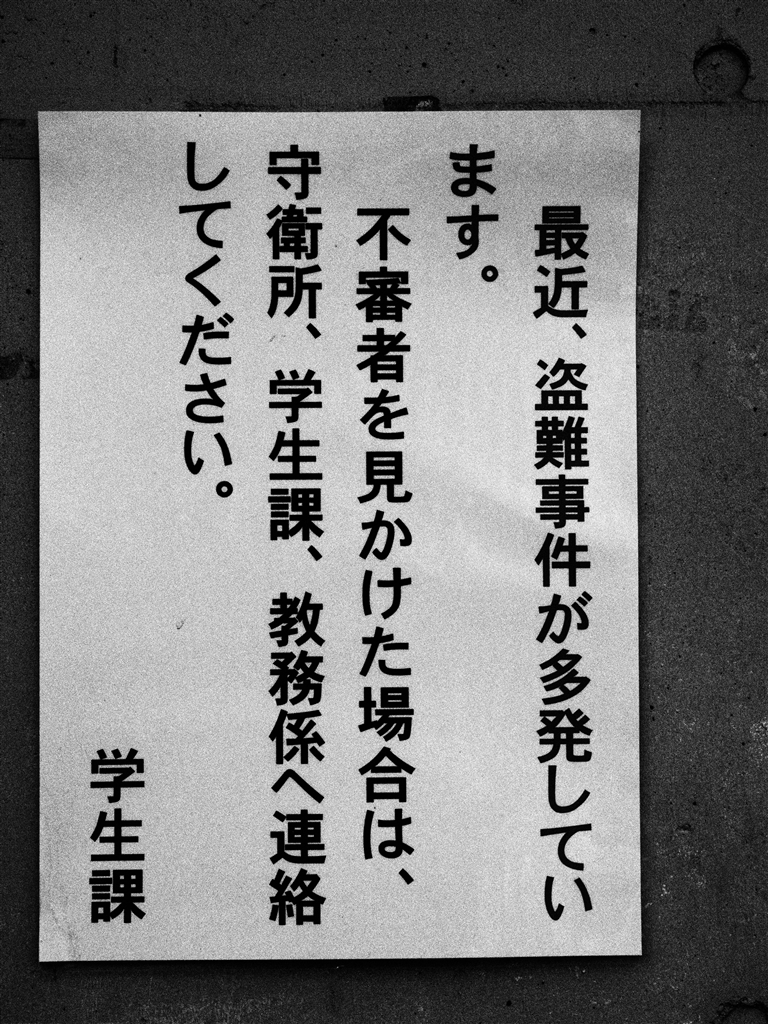 最近、盗難事件が多発してい
ます。
不審者を見かけた場合は、
守衛所、学生課、教務係へ連絡
してください。
学生課